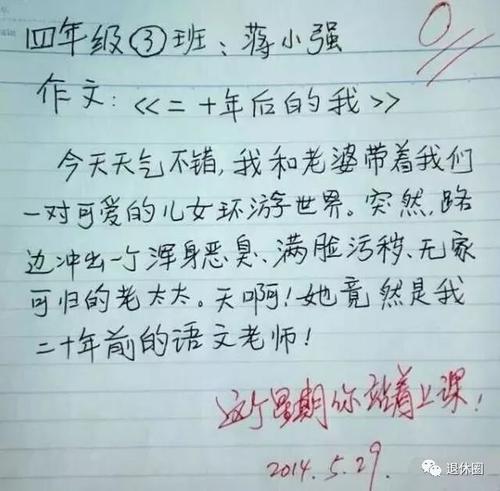 四年级③班：蒋小强
0
作文：<<二十年后的我>>
今天天气不错，我和老婆带着我们
一对可爱的儿女环游世界。突然，路
边冲出一个浑身恶臭、满脸污秽、无家
可归的老太太。天啊！她竟然是我
二十年前的语文老师！
这个星期你站着上课！
2014.5.29.
退休圈